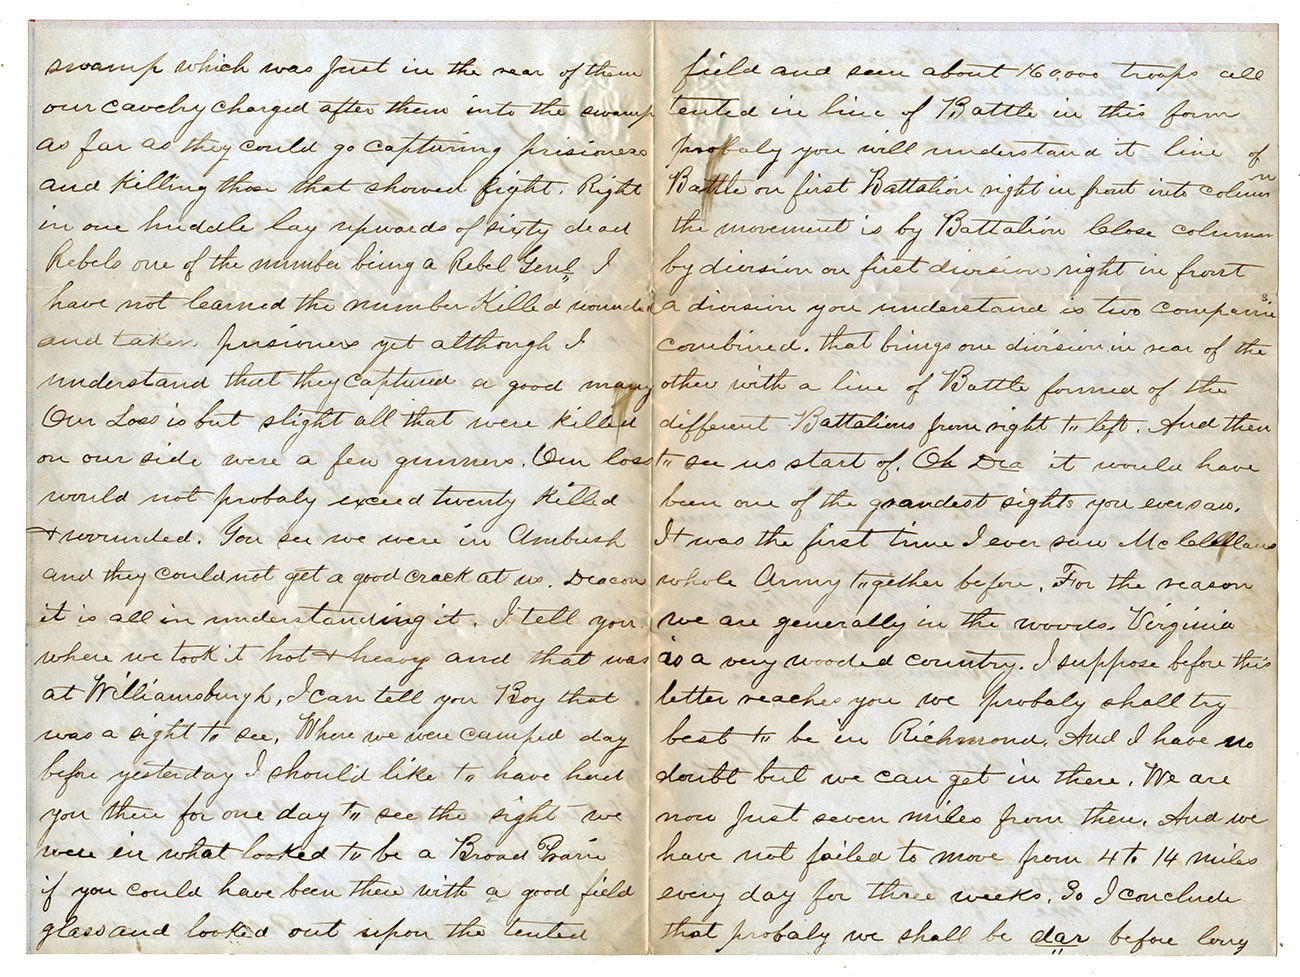 swamp which was Just in the rear of them
our cavelry charged after them into the swamp
as far as they could go capturing prisioners
and Killing those that showed fight. Right
in one huddle lay upwards of sixty dead
Rebels one of the number being a Rebel Genl. I
have not learned the number Killed wounded
and taken prisioners yet although I
understand that they captured a good many
Our Loss is but slight all that were Killed
on our side were a few gunners. Our loss
would not probaly exceed twenty Killed
& wounded. You see we were in Ambush
and they could not get a good crack at us. Deacon
it is all in understanding it. I tell you
where we took it hot & heavy and that was
at Williamsburgh, I can tell you Boy that
was a sight to see. Where we were camped day
before yesterday I should like to have had
you there for one day to see the sight we
were in what looked to be a Broad Prarie
if you could have been there with a good field
glass and looked out upon the tented
field and seen about 160,000 troops all
tented in line of Battle in this form
probaly you will understand it line of
Battle on first Battalion right in front into column
the movement is by Battalion Close column
by division on first division right in front
a division you understand is two companies
combined. that brings one division in rear of the
other with a line of Battle formed of the
different Battalions from right to left. And then
to see us start of. Oh Dea it would have
been one of the grandest sights you ever saw.
It was the first time I ever saw McClellans
whole Army together before. For the reason
we are generally in the woods. Virginia
is a very wooded country. I suppose before this
letter reaches you we probaly shall try
best to be in Richmond. And I have no
doubt but we can get in there. We are
now Just seven miles from there. And we
have not failed to move from 4 to 14 miles
every day for three weeks. So I conclude
that probaly we shall be dar before long